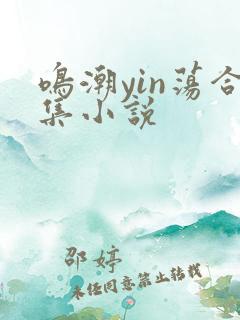 鸣潮yin荡合
集小说
邵婷
未经同意禁止转载